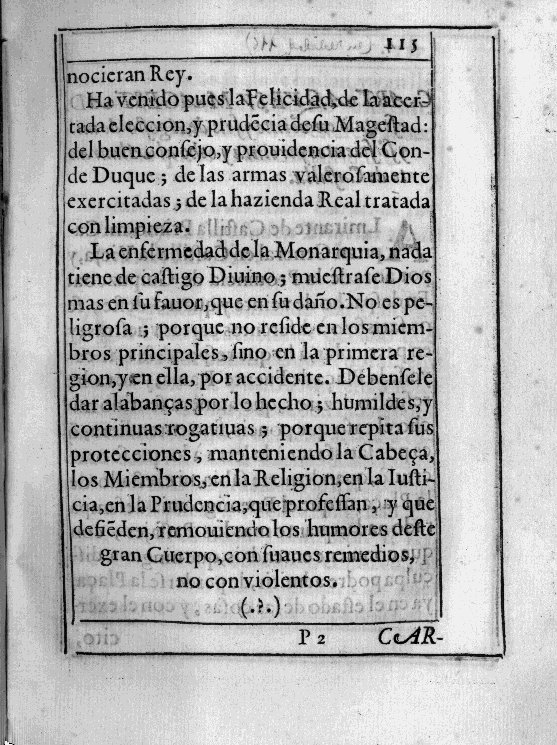 115
nocieran Rey.
Ha venido pues la Felicidad, de la acer-
tada eleccion, y prudẽcia de su Magestad:
del buen consejo, y prouidencia del Con-
de Duque ; de las armas valerosamente
exercitadas ; de la hazienda Real tratada
con limpieza.
La enfermedad de la Monarquia, nada
tiene de castigo Diuino ; muestrase Dios
mas en su fauor, que en su daño. No es pe-
ligrosa ; porque no reside en los miem-
bros principales, sino en la primera re-
gion, y en ella, por accidente. Debensele
dar alabanças por lo hecho ; humildes, y
continuas rogatiuas ; porque repita sus
protecciones, manteniendo la Cabeça,
los Miembros, en la Religion, en la Iusti-
cia, en la Prudencia, que professan, y que
defiẽden, remouiendo los humores deste
gran Cuerpo, con suaues remedios,
no con violentos.
(.?.)
P 2 CAR-